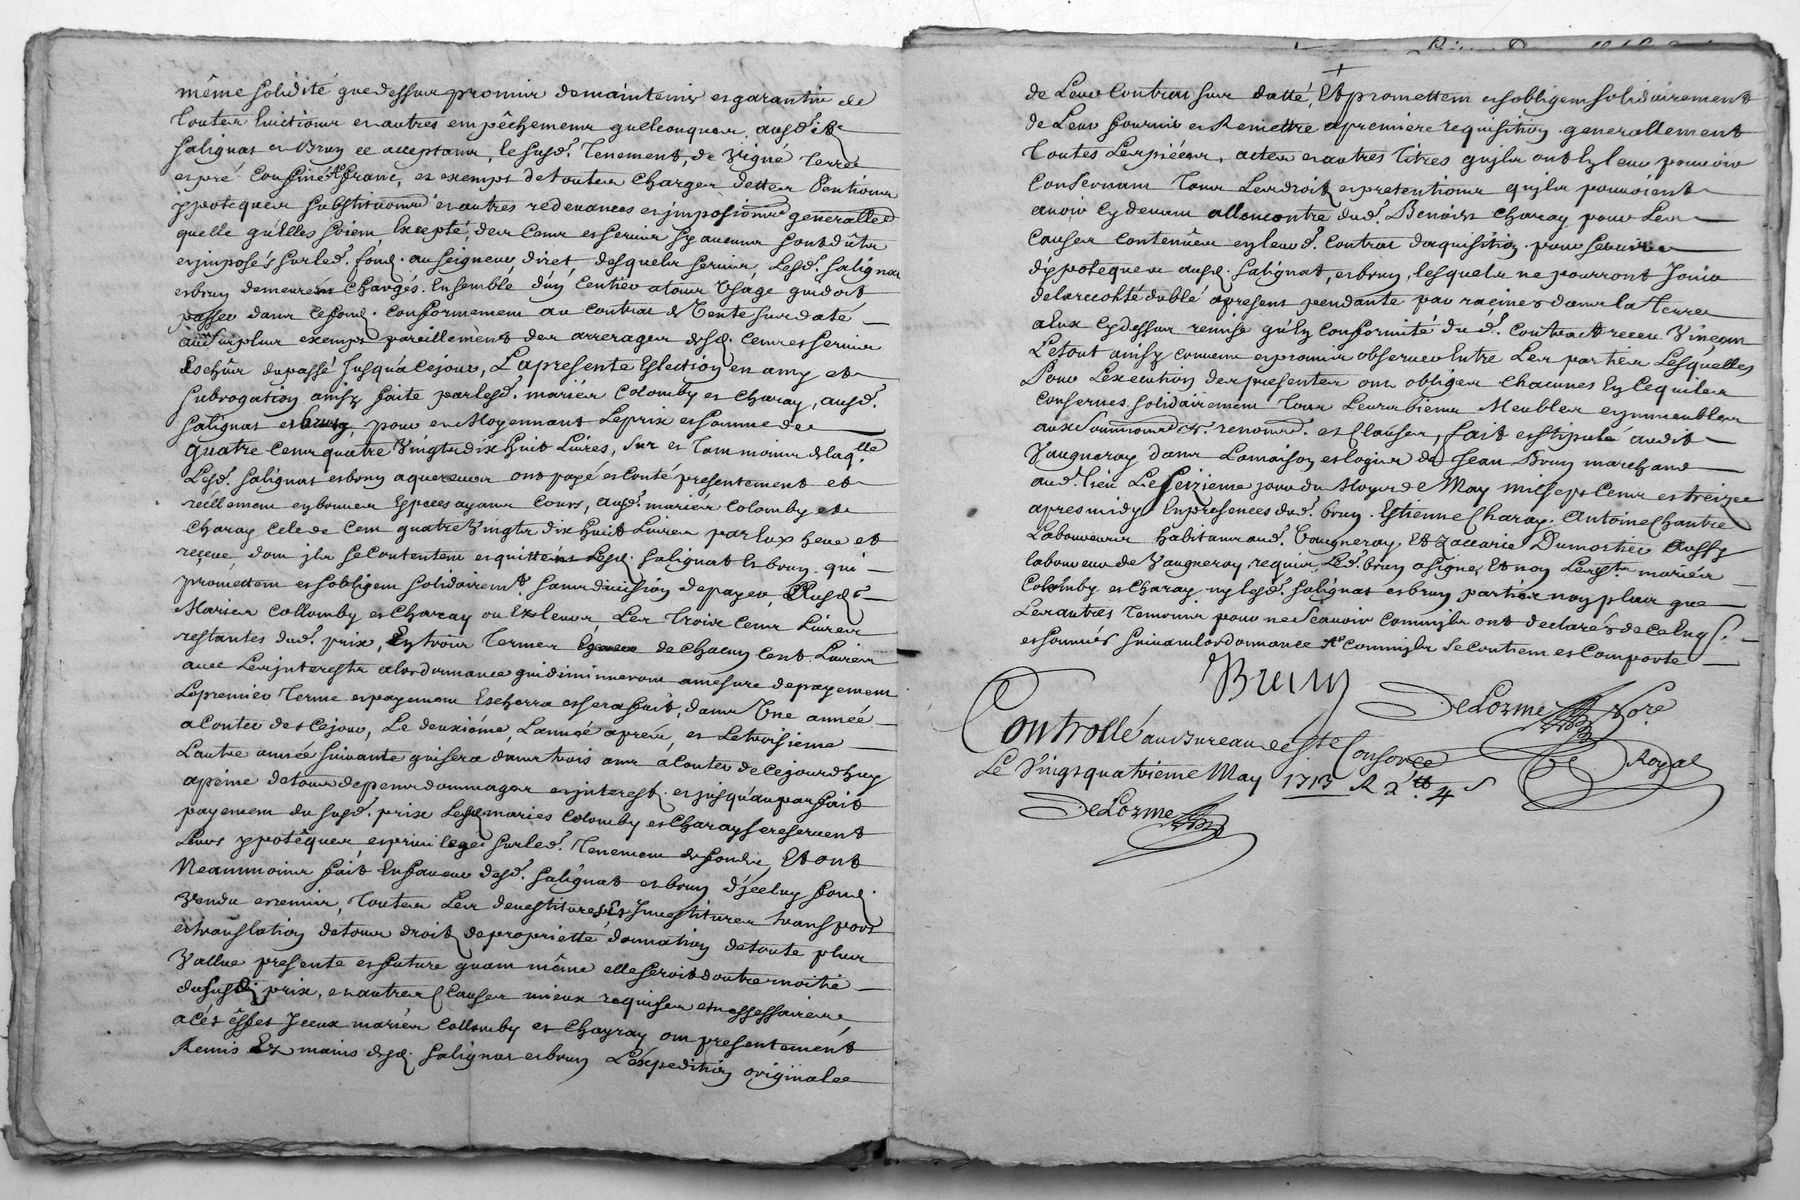 même solidité que dessus promis de maintenir et garantir de
toutes evictions et autres empêchemens quelconques, ausd. its
Salignat et Bruy ce acceptans, le susd. Tenement, de vigne Terre
et pré Confiné, franc, et exempt de toutes Charges dettes Pentions
ypoteques substitutions et autres redevances et impositions generalles
quelle qu'elles soient, Excepté, des Cens et servis sy aucuns sont dûtz
et imposés sur led. fond. au seigneur diret, desquels servis, Lesd. Salignat
et bruy demeurent Chargés. Ensemble d'un Centier a tous Usage qui doit
passer dans ce fond. Conformement au Contrat de Vente sur daté
au surplus exempt pareillement des arrerages desd. Cens et servis
Escheus du passé Jusqu'a ce jour, La presente Eslection en amy et
subrogation ainsy faite par lesd. mariés Colomby et Charay, ausd.
Salignat et bruy, pour et Moyennant Le prix et somme de
quatre Cens quatre Vingts dix huit Livres, sur et Tant moins de laq.lle
Lesd. Salignat et bruy aquereurs ont payé et Conté presentement et
réellement en bonnes Especes ayans Cours, ausd. mariés Colomby et
Charay Celle de Cent quatre Vingts dix huit Livres par eux heue et
reçeue, dont ils se Contentent et quittent Lesd. Salignat et bruy. qui
promettent et s'obligent solidairem.t sans division de payer, Ausd.
Mariés Collomby et Charay ou Ex leurs, Les Trois Cens Livres
restantes dud. prix, En trois Termes de Chacun Cent Livres
avec Les interestz a l'ordonnance qui diminueront a mesure de payement
Le premier Terme et payement Escherra et sera fait, dans Une année
a Conter de Ce jour, Le deuxiéme, L'année aprés, et Le troisieme
L'autre année suivante qui sera dans trois ans a Conter de Ce jourd'huy
a peine de tous depens dommages et interest. et jusqu'au parfait
payement du susd. prix Lesd. mariés Colomby et Charay se reservent
Leurs ypotêques et privileges sur led. Tenement de fondz, Et ont
Neanmoins fait En faveur desd. Salignat et bruy d'jceluy fond.
Vendu et remis, Toutes Les devestitures, et Jnvestitures transport
et translation de tous droitz de proprietté donnation de toute plus
Vallue presente et future quant même elle seroit d'outre moitié
du susd. prix, et autres Clauses mieux requises et nessessaires
a cés êffet Jceux mariés Collomby et Chayray ont presentement
Remis Ex mains desd. Salignat et bruy L'expedition originalle
de Leur Contrat sur datté, Et promettent et s'obligent solidairement
de Leur fournir et Remettre a premiere requisition. generallement
Toutes Les piéces, actes et autres titres qu'ils ont En leur pouvoir
Consernant Tous Les droitz et pretentions qu'ils pouvoient
avoir Cy devant allencontre dud. Benoist Charay pour Les
Causes Contenûes en leurd. Contrat d'aquisition. pour servir
d'ypoteque ausd. Salignat, et bruy, lesquels ne pourront Jouir
de la recolte du blé apresent pendante par racines dans la Terre
a Eux Cy dessus remise qu'En Conformité dud. Contract receu Vincent
Le tout ainsy Convenu et promis observer Entre Les parties Lesquelles
Pour L'execution des presentes ont obligés Chacunes En Ce qui les
Conserne, solidairement Tous Leurs biens Meubles et jmmeubles
aux soumissions et. renons. et Clauses, fait et stipulé audit
Vaugneray dans La maison et logis de Jean Bruy marchand
aud. Lieu Le seizieme jour du Moys de May mil sept Cens et treize
apres midy En presences dud. bruy. Estienne Charay. Antoine Chantre
Laboureurs habitans aud. Vaugneray. Et Zaccarie Dumortier Aussy
laboureur de Vaugneray requis, Led. bruy a signé, Et non Lesd. mariés
Colomby et Charay ny lesd. Salignat et bruy parties non plus que
Les autres Temoins pour ne Scavoir Comm'ils ont declarés de Ce Enq.
et sommés suivant l'ordonnance Comm'ils se Contient et Comporte
Bruy
DeLorme Nore
Royal
Controllé au Bureau de Ste Consorce
Le Vingt quatrieme May 1713 R 2tt. 4 s
DeLorme